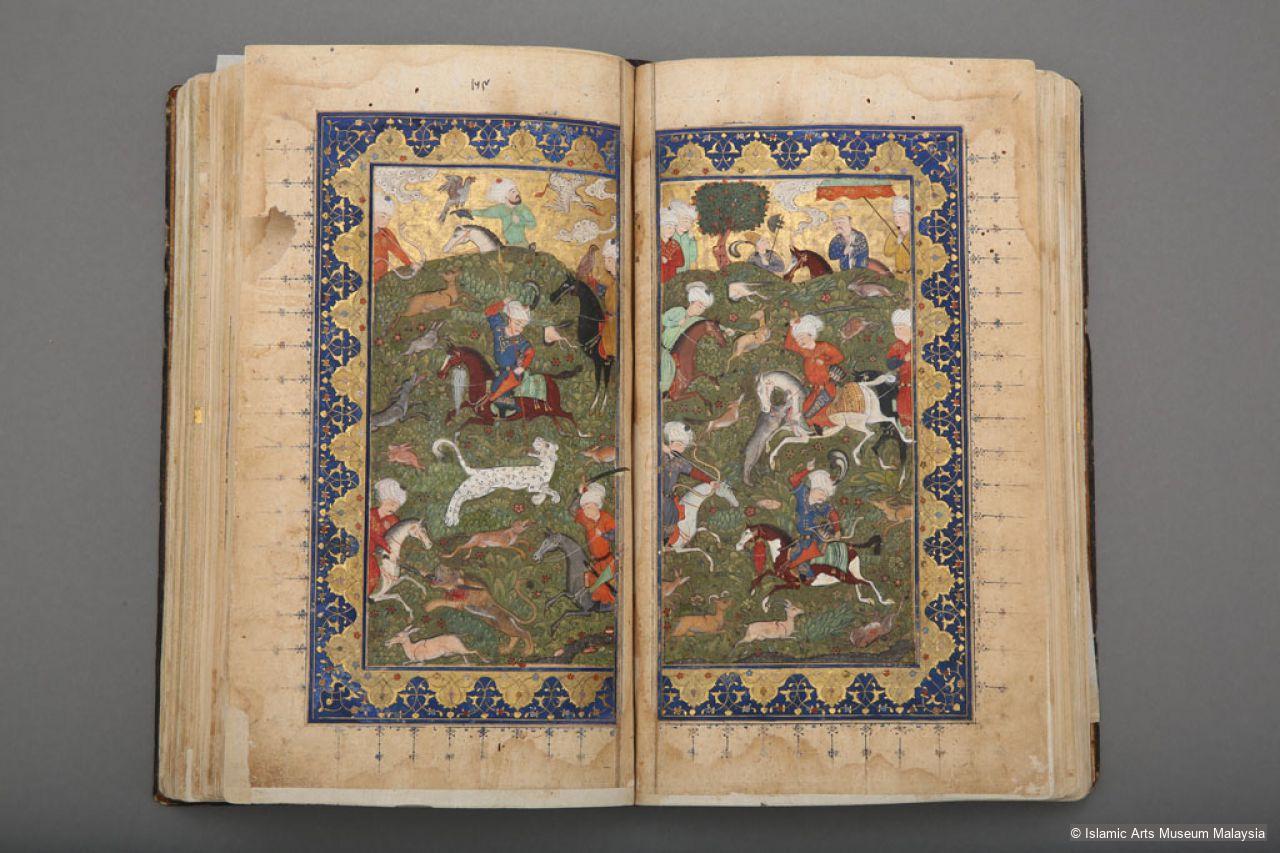 © Islamic Arts Museum Malaysia